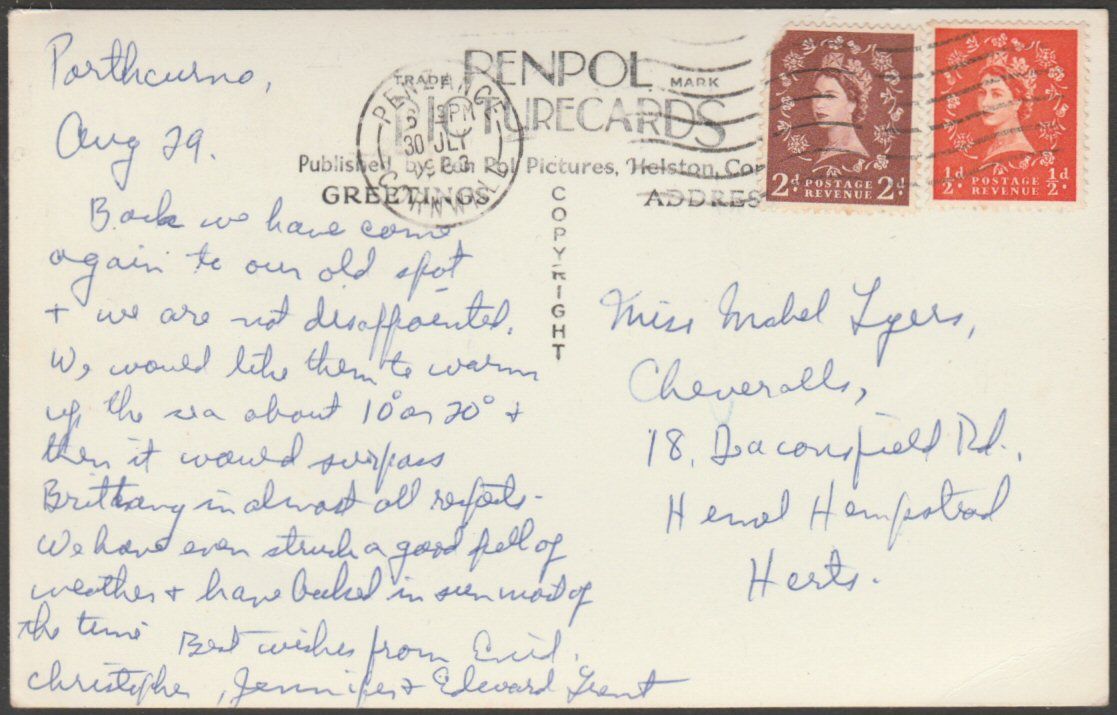 Porthcurno,
Aug 29.
Back we have come
again to our old spot
+ we are not disappointed.
We would like them to warm
up the sea about 10° or 20° +
then it would surpass
Brittany in almost all respects.
We have even struck a good spell of
weather + have baked in sun most of
the time
Best wishes from Enid,
Christopher, Jennifer + Edward
TRADE PENPOL MARK
PICTURECARDS
Published by Pen Pol Pictures, Helston, Cor
GREETINGS
COPYRIGHT
ADDRES
PENZANCE
PM
30 JLY
CORNWALL
2d. POSTAGE REVENUE 2d.
½d. POSTAGE REVENUE ½d.
Miss Mabel Tyers,
Cheveralls,
78, Beaconsfield Rd.,
Hemel Hempstead
Herts.